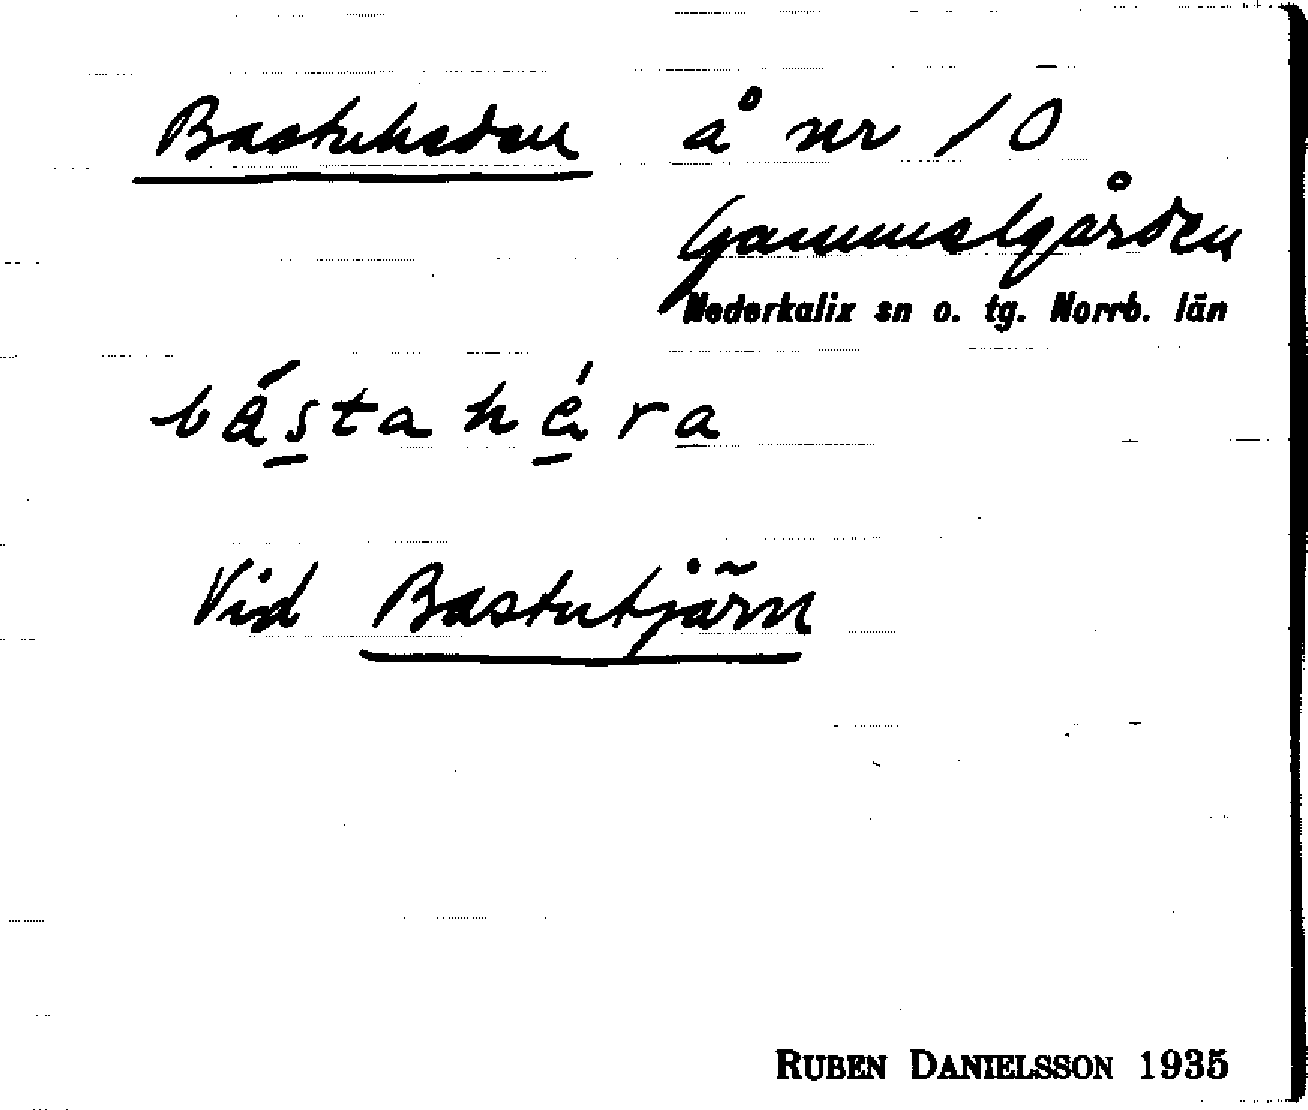 Bastuheden å nr 10
Gammelgården
Nederkalix sn o. tg. Norrb. län
bástahéra
Vid Bastutjärn
RUBEN DANIELSSON 1935